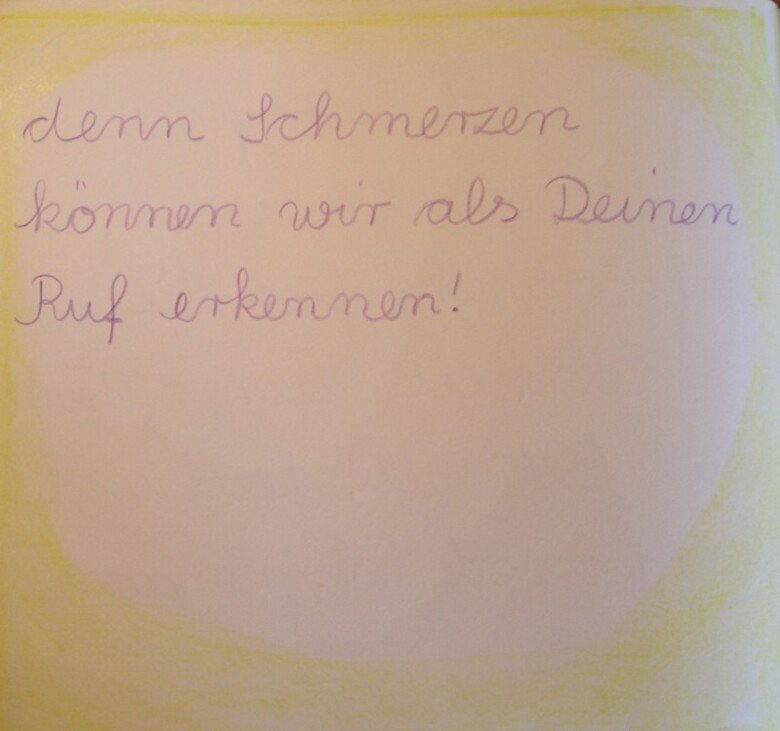 denn Schmerzen
können wir als Deinen
Ruf erkennen!